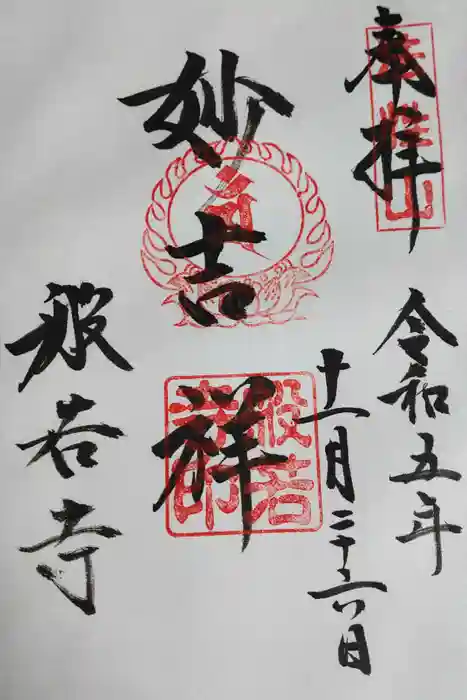 奉拝
令和五年
十一月二十六日
妙吉祥
般若寺
般若寺印